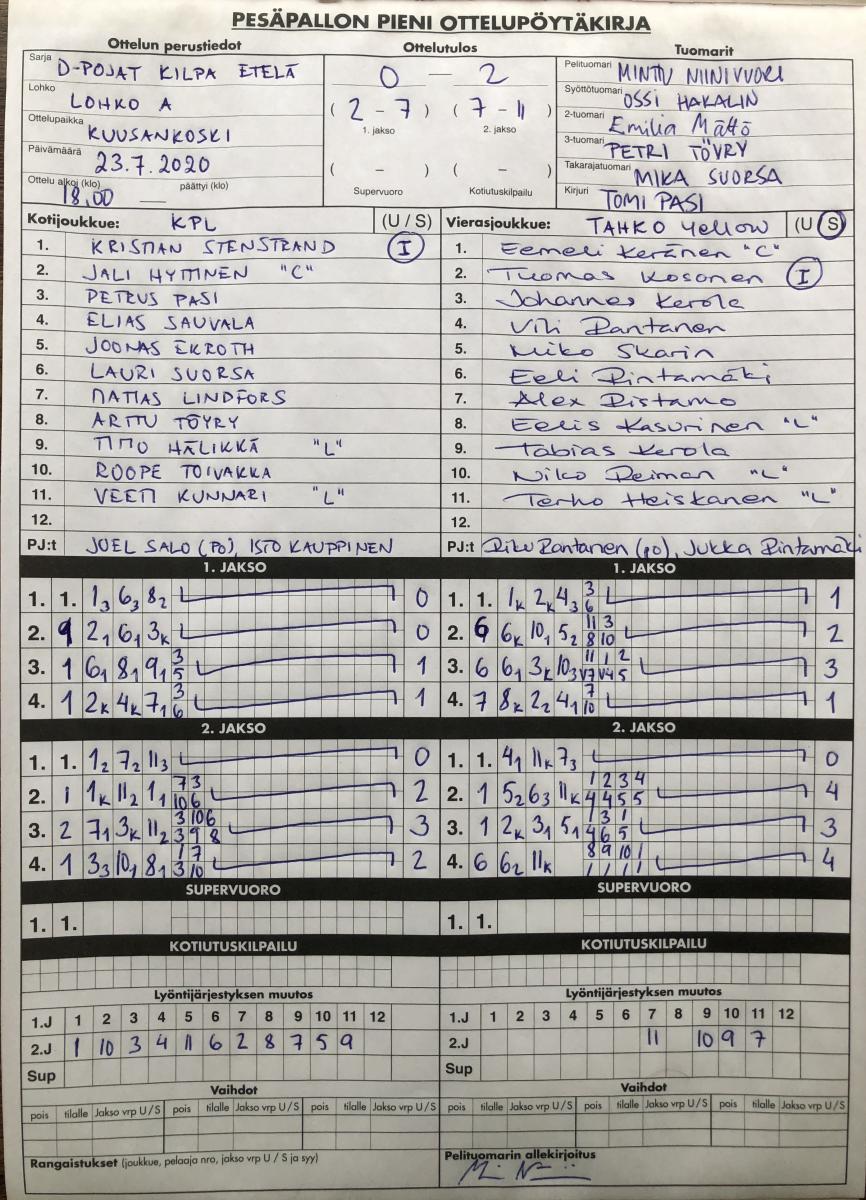 PESÄPALLON PIENI OTTELUPÖYTÄKIRJA
Ottelun perustiedot
Sarja D-POJAT KILPA ETELÄ
Lohko LOHKO A
Ottelupaikka KUUSANKOSKI
Päivämäärä 23.7.2020
Ottelu alkoi (klo) 18.00 päättyi (klo) —
Ottelutulos
0 — 2
( 2 - 7 ) ( 7 - 11 )
1. jakso 2. jakso
( - ) ( - )
Supervuoro Kotiutuskilpailu
Tuomarit
Pelituomari MINTTU NIINIVUORI
Syöttötuomari OSSI HAKALIN
2-tuomari Emilia Mättö
3-tuomari PETRI TÖYRY
Takarajatuomari MIKA SUORSA
Kirjuri TOMI PASI
Kotijoukkue: KPL (U / S)
1. KRISTIAN STENSTRAND I
2. JALI HYTTINEN "C"
3. PETRUS PASI
4. ELIAS SAUVALA
5. JOONAS EKROTH
6. LAURI SUORSA
7. MATIAS LINDFORS
8. ARTTU TÖYRY
9. TIMO HÄLIKKÄ "L"
10. ROOPE TOIVAKKA
11. VEETI KUNNARI "L"
12.
PJ:t JOEL SALO (PO), ISTO KAUPPINEN
Vierasjoukkue: TAHKO Yellow (U S)
1. Eemeli Keränen "C"
2. Tuomas Kosonen I
3. Johannes Kerola
4. Vili Rantanen
5. Miko Skarin
6. Eeli Rintamäki
7. Alex Ristamo
8. Eelis Kasurinen "L"
9. Tobias Kerola
10. Niko Reiman "L"
11. Terho Heiskanen "L"
12.
PJ:t Riku Rantanen (po), Jukka Rintamäki
1. JAKSO
1. 1. 1₃ 6₃ 8₂ 0
2. 9 2₁ 6₁ 3ₖ 0
3. 1 6₁ 8₁ 9₁ 3 5 1
4. 1 2ₖ 4ₖ 7₁ 3 6 1
1. JAKSO
1. 1. 1ₖ 2ₖ 4₃ 3 6 1
2. 6 6ₖ 10₁ 5₂ 11 8 3 10 2
3. 6 6₁ 3ₖ 10₃ 11 V7 1 V4 2 5 3
4. 7 8ₖ 2₂ 4₁ 7 10 1
2. JAKSO
1. 1. 1₂ 7₂ 11₃ 0
2. 1 1ₖ 11₂ 1₁ 7 10 3 6 2
3. 2 7₁ 3ₖ 11₂ 3 3 10 9 6 8 3
4. 1 3₃ 10₁ 8₁ 1 3 7 10 2
2. JAKSO
1. 1. 4₁ 11ₖ 7₃ 0
2. 1 5₂ 6₃ 11ₖ 1 4 2 4 3 5 4 5 4
3. 1 2ₖ 3₁ 5₁ 1 4 3 6 1 5 3
4. 6 6₂ 11ₖ 8 1 9 1 10 1 1 1 4
SUPERVUORO
1. 1.
SUPERVUORO
1. 1.
KOTIUTUSKILPAILU
KOTIUTUSKILPAILU
Lyöntijärjestyksen muutos
1.J 1 2 3 4 5 6 7 8 9 10 11 12
2.J 1 10 3 4 11 6 2 8 7 5 9
Sup
Lyöntijärjestyksen muutos
1.J 1 2 3 4 5 6 7 8 9 10 11 12
2.J 11 10 9 7
Sup
Vaihdot
pois tilalle Jakso vrp U / S pois tilalle Jakso vrp U / S pois tilalle Jakso vrp U / S
Vaihdot
pois tilalle Jakso vrp U / S pois tilalle Jakso vrp U / S pois tilalle Jakso vrp U / S
Rangaistukset (joukkue, pelaaja nro, jakso vrp U / S ja syy)
Pelituomarin allekirjoitus